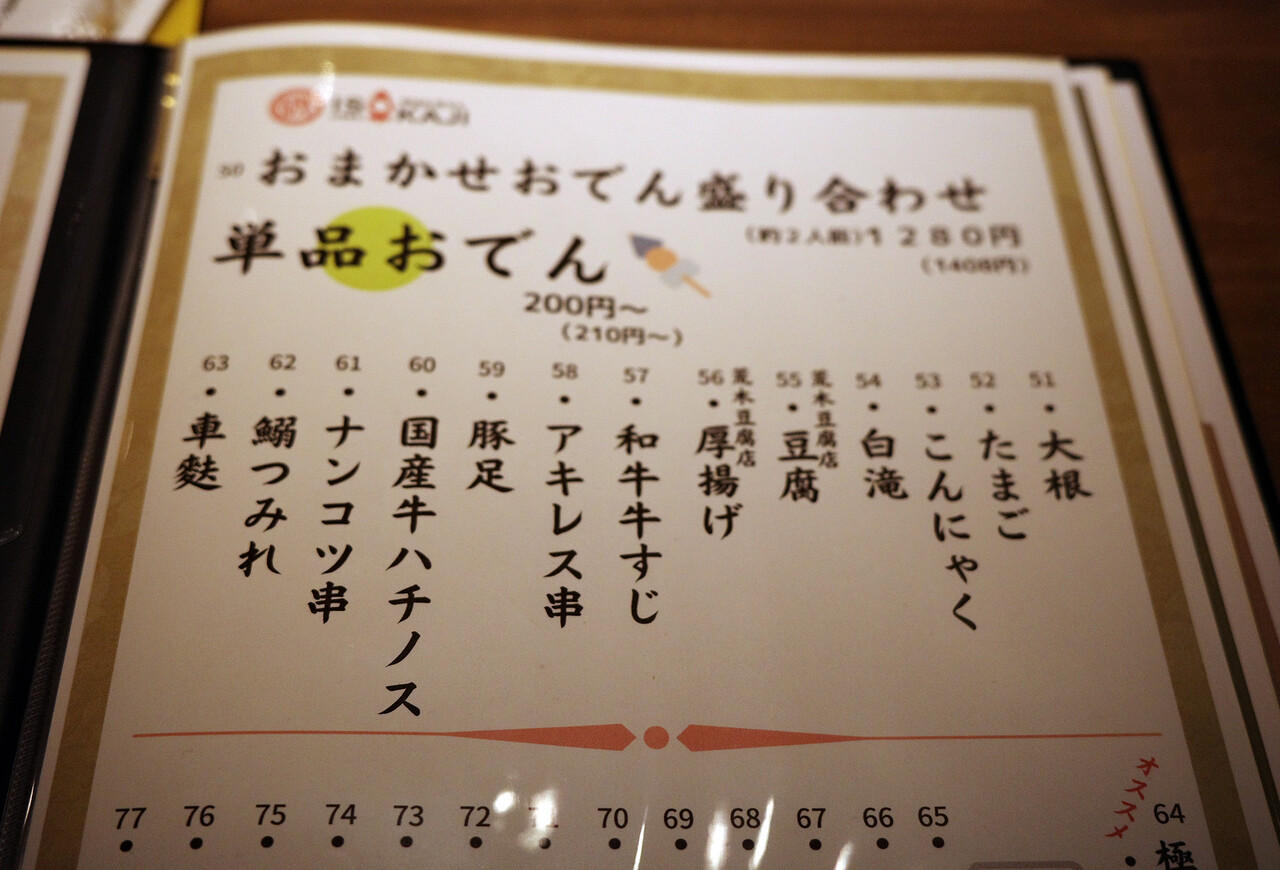 50 おまかせおでん盛り合わせ
(約2人前)1280円
(1408円)
単品おでん
200円～
(210円～)
51・大根
52・たまご
53・こんにゃく
54・白滝
55・豆腐
荒木豆腐店
56・厚揚げ
荒木豆腐店
57・和牛牛すじ
58・アキレス串
59・豚足
60・国産牛ハチノス
61・ナンコツ串
62・鰯つみれ
63・車麩
オススメ
64・極
65・
66・
67・
68・
69・
70・
71・
72・
73・
74・
75・
76・
77・